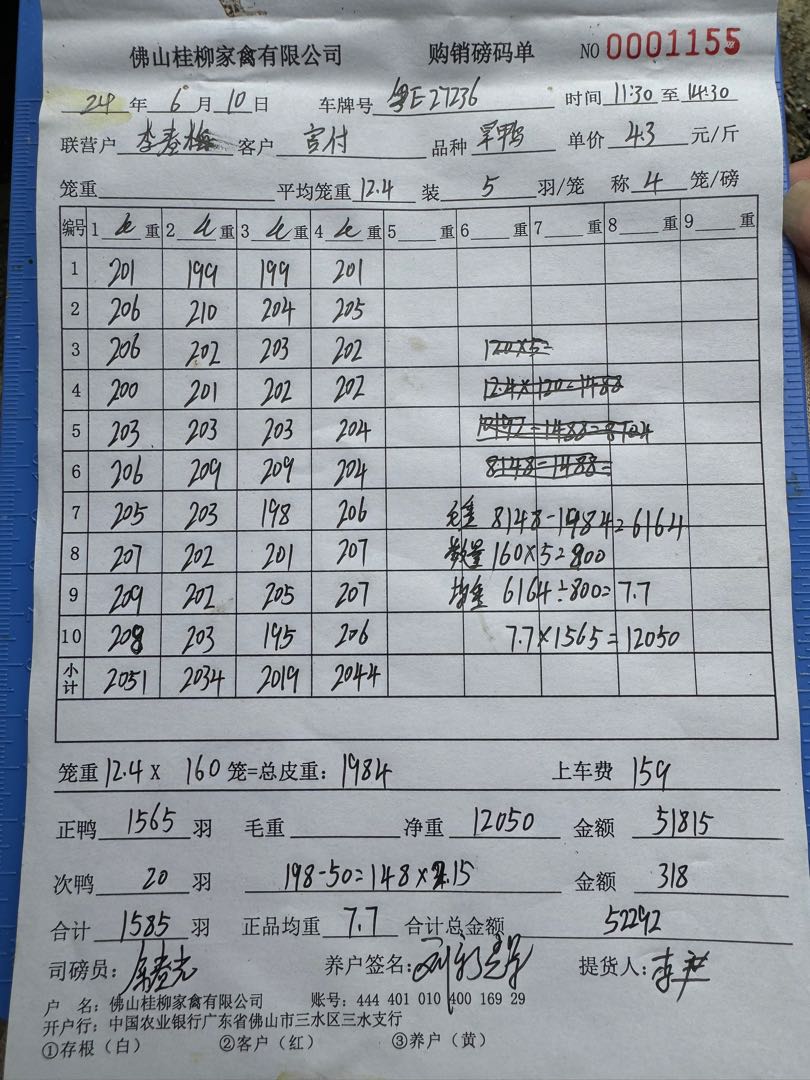 佛山桂柳家禽有限公司 购销磅码单 NO 0001155
24 年 6 月 10 日 车牌号 粤E27236 时间 11:30 至 14:30
联营户 李春梅 客户 客户 品种 单价 4.3 元/斤
笼重 平均笼重 12.4 装 5 羽/笼 称 4 笼/磅
编号 1 毛 重 2 毛 重 3 毛 重 4 毛 重 5 重 6 重 7 重 8 重 9 重
1 201 199 199 201
2 206 210 204 205
3 206 202 203 202 120×5=
4 200 201 202 202 12.4×120=1488
5 203 203 203 204
6 206 209 209 204 8148=1488=
7 205 203 198 206 毛重 8148-1984=6164
8 207 202 201 207 数量 160×5=800
9 209 202 205 207 均重 6164÷800=7.7
10 208 203 195 206 7.7×1565=12050
小计 2051 2034 2019 2044
笼重 12.4 X 160 笼=总皮重: 1984 上车费 159
正鸭 1565 羽 毛重 净重 12050 金额 51815
次鸭 20 羽 198-50=148×2.15 金额 318
合计 1585 羽 正品均重 7.7 合计总金额 52292
司磅员: 养户签名: 提货人:
户 名: 佛山桂柳家禽有限公司 账号: 444 401 010 400 169 29
开户行: 中国农业银行广东省佛山市三水区三水支行
①存根（白） ②客户（红） ③养户（黄）